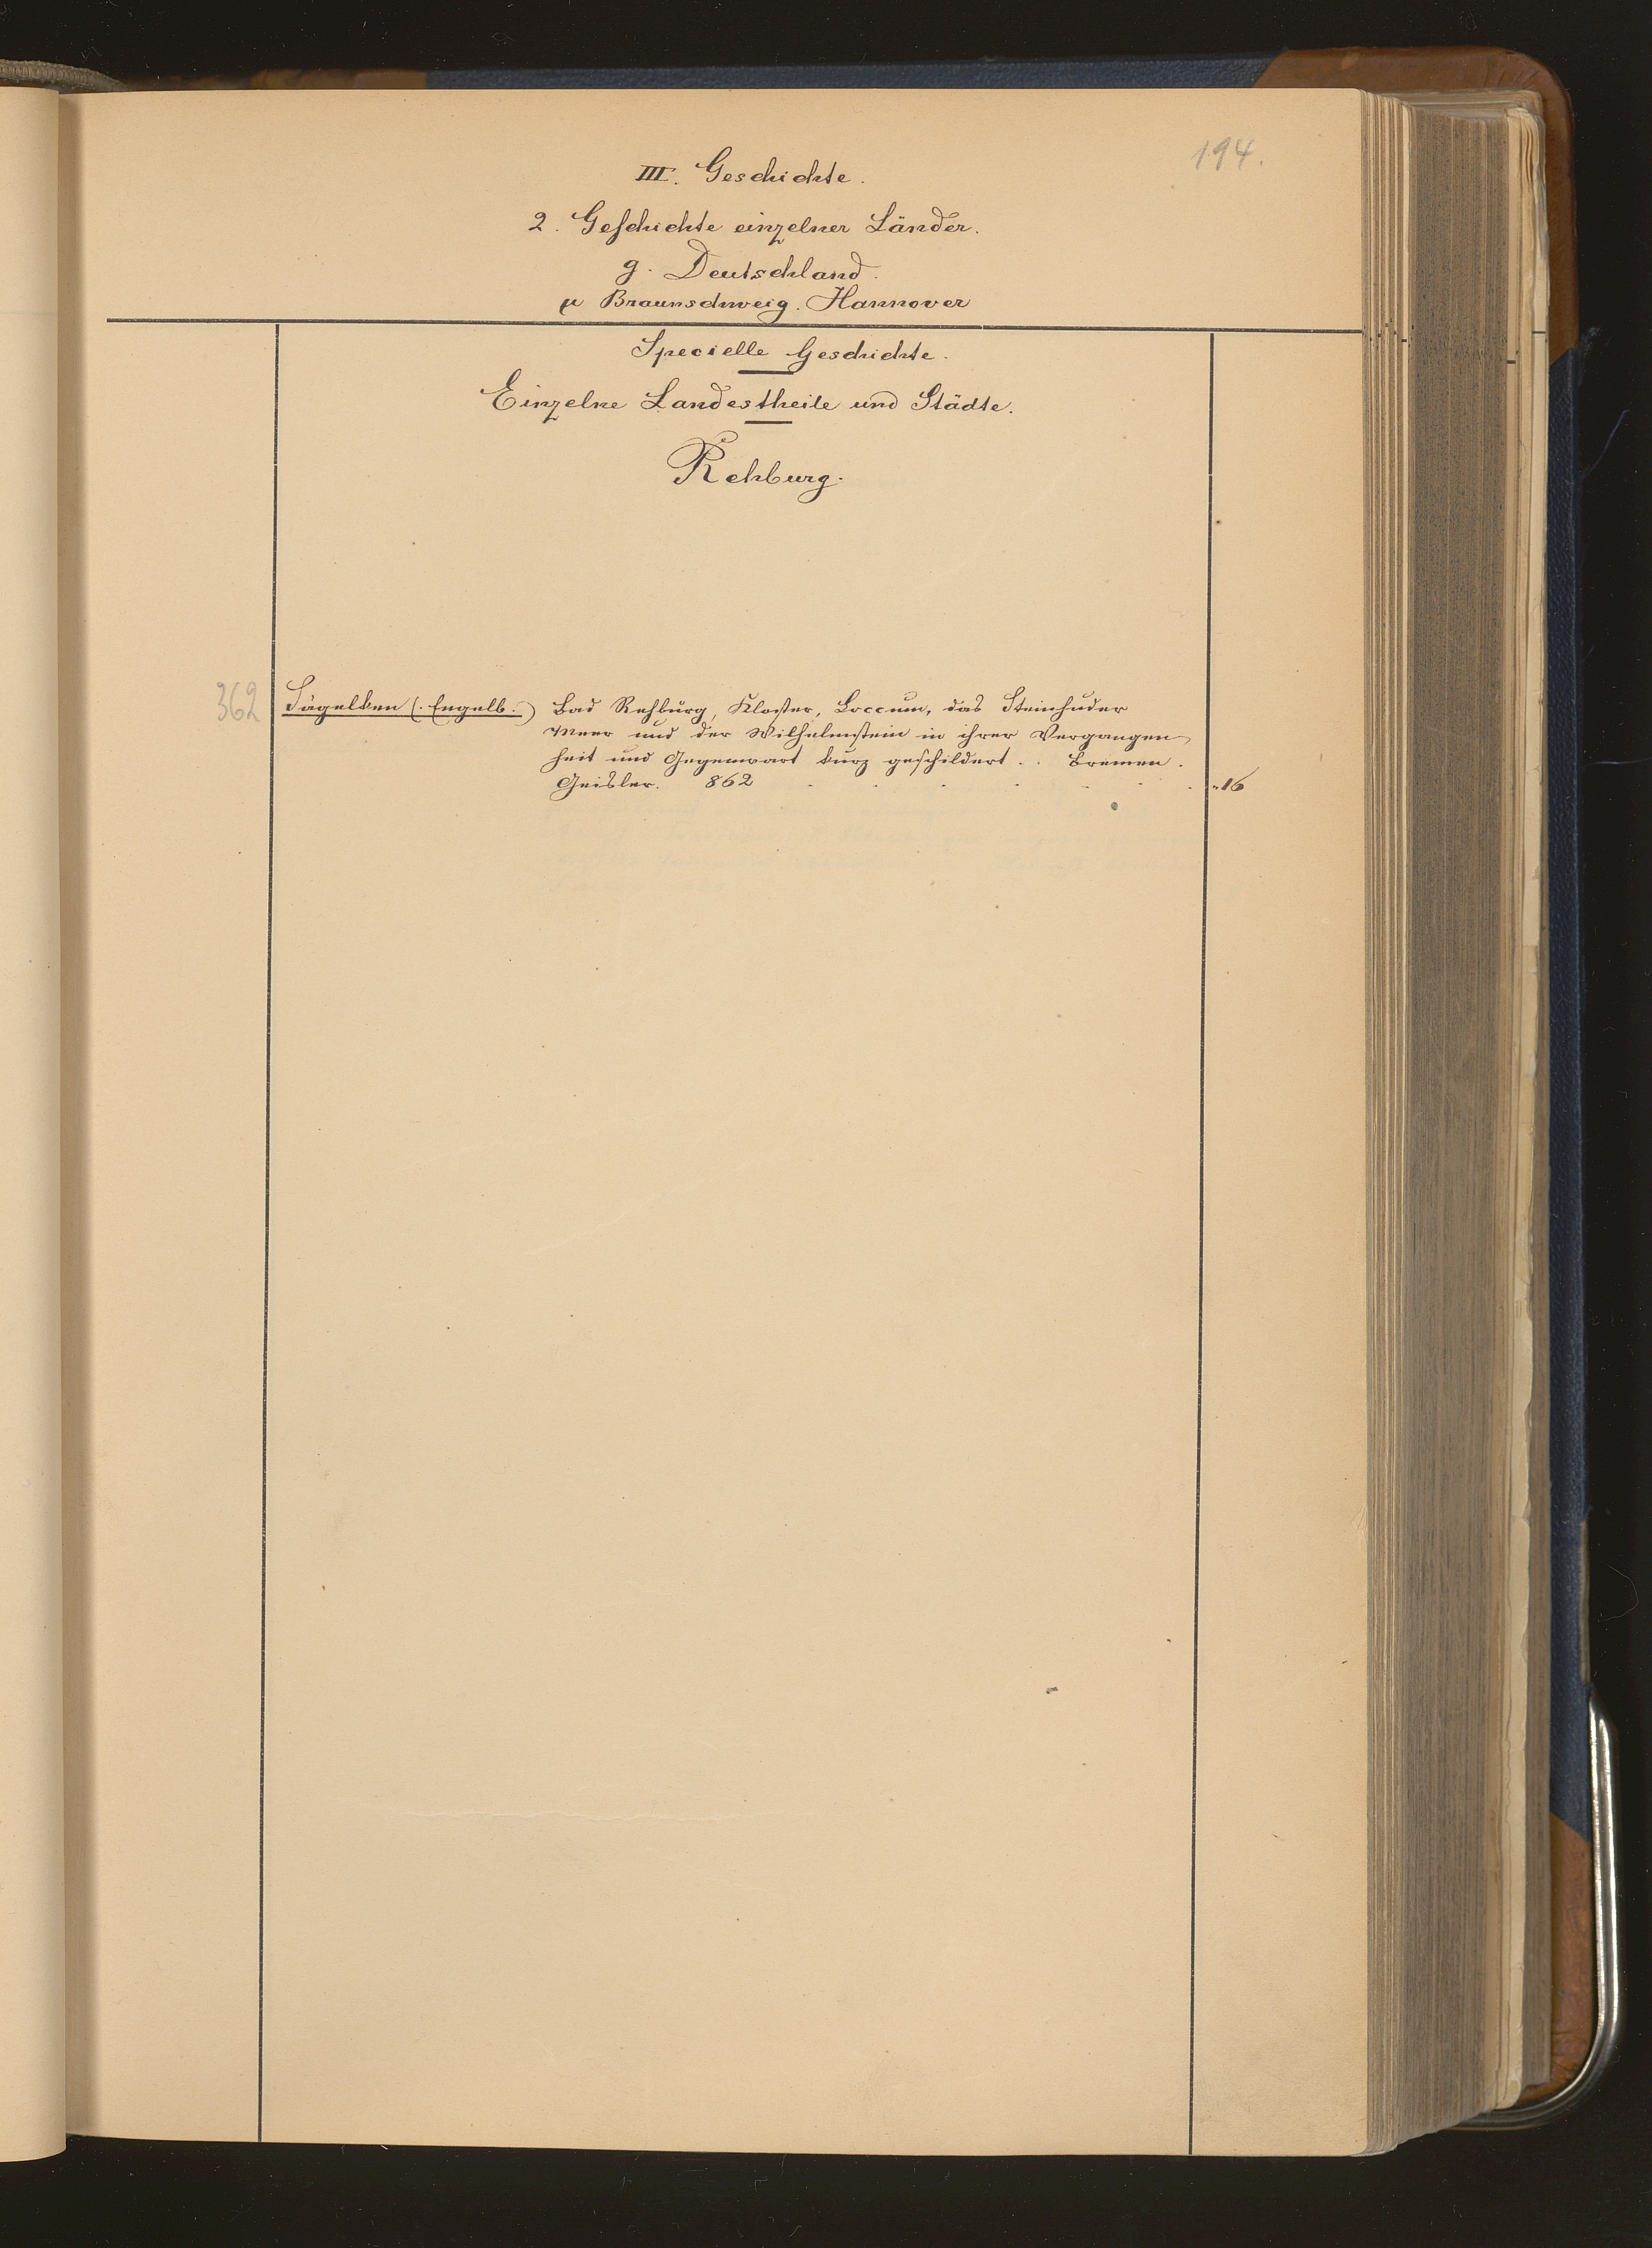 194.
III. Geschichte.
2. Geschichte einzelner Länder.
g. Deutschland.
μ Braunschweig. Hannover
Specielle Geschichte.
Einzelne Landestheile und Städte.
Rehburg.
362 Sägelken (. Engelb.) Bad Rehburg, Kloster, Loccum, das Steinhuder
Meer und der Wilhelmstein in ihrer Vergangen
heit und Gegenwart kurz geschildert. . Bremen.
Geisler. 862 . . . . . . . 16